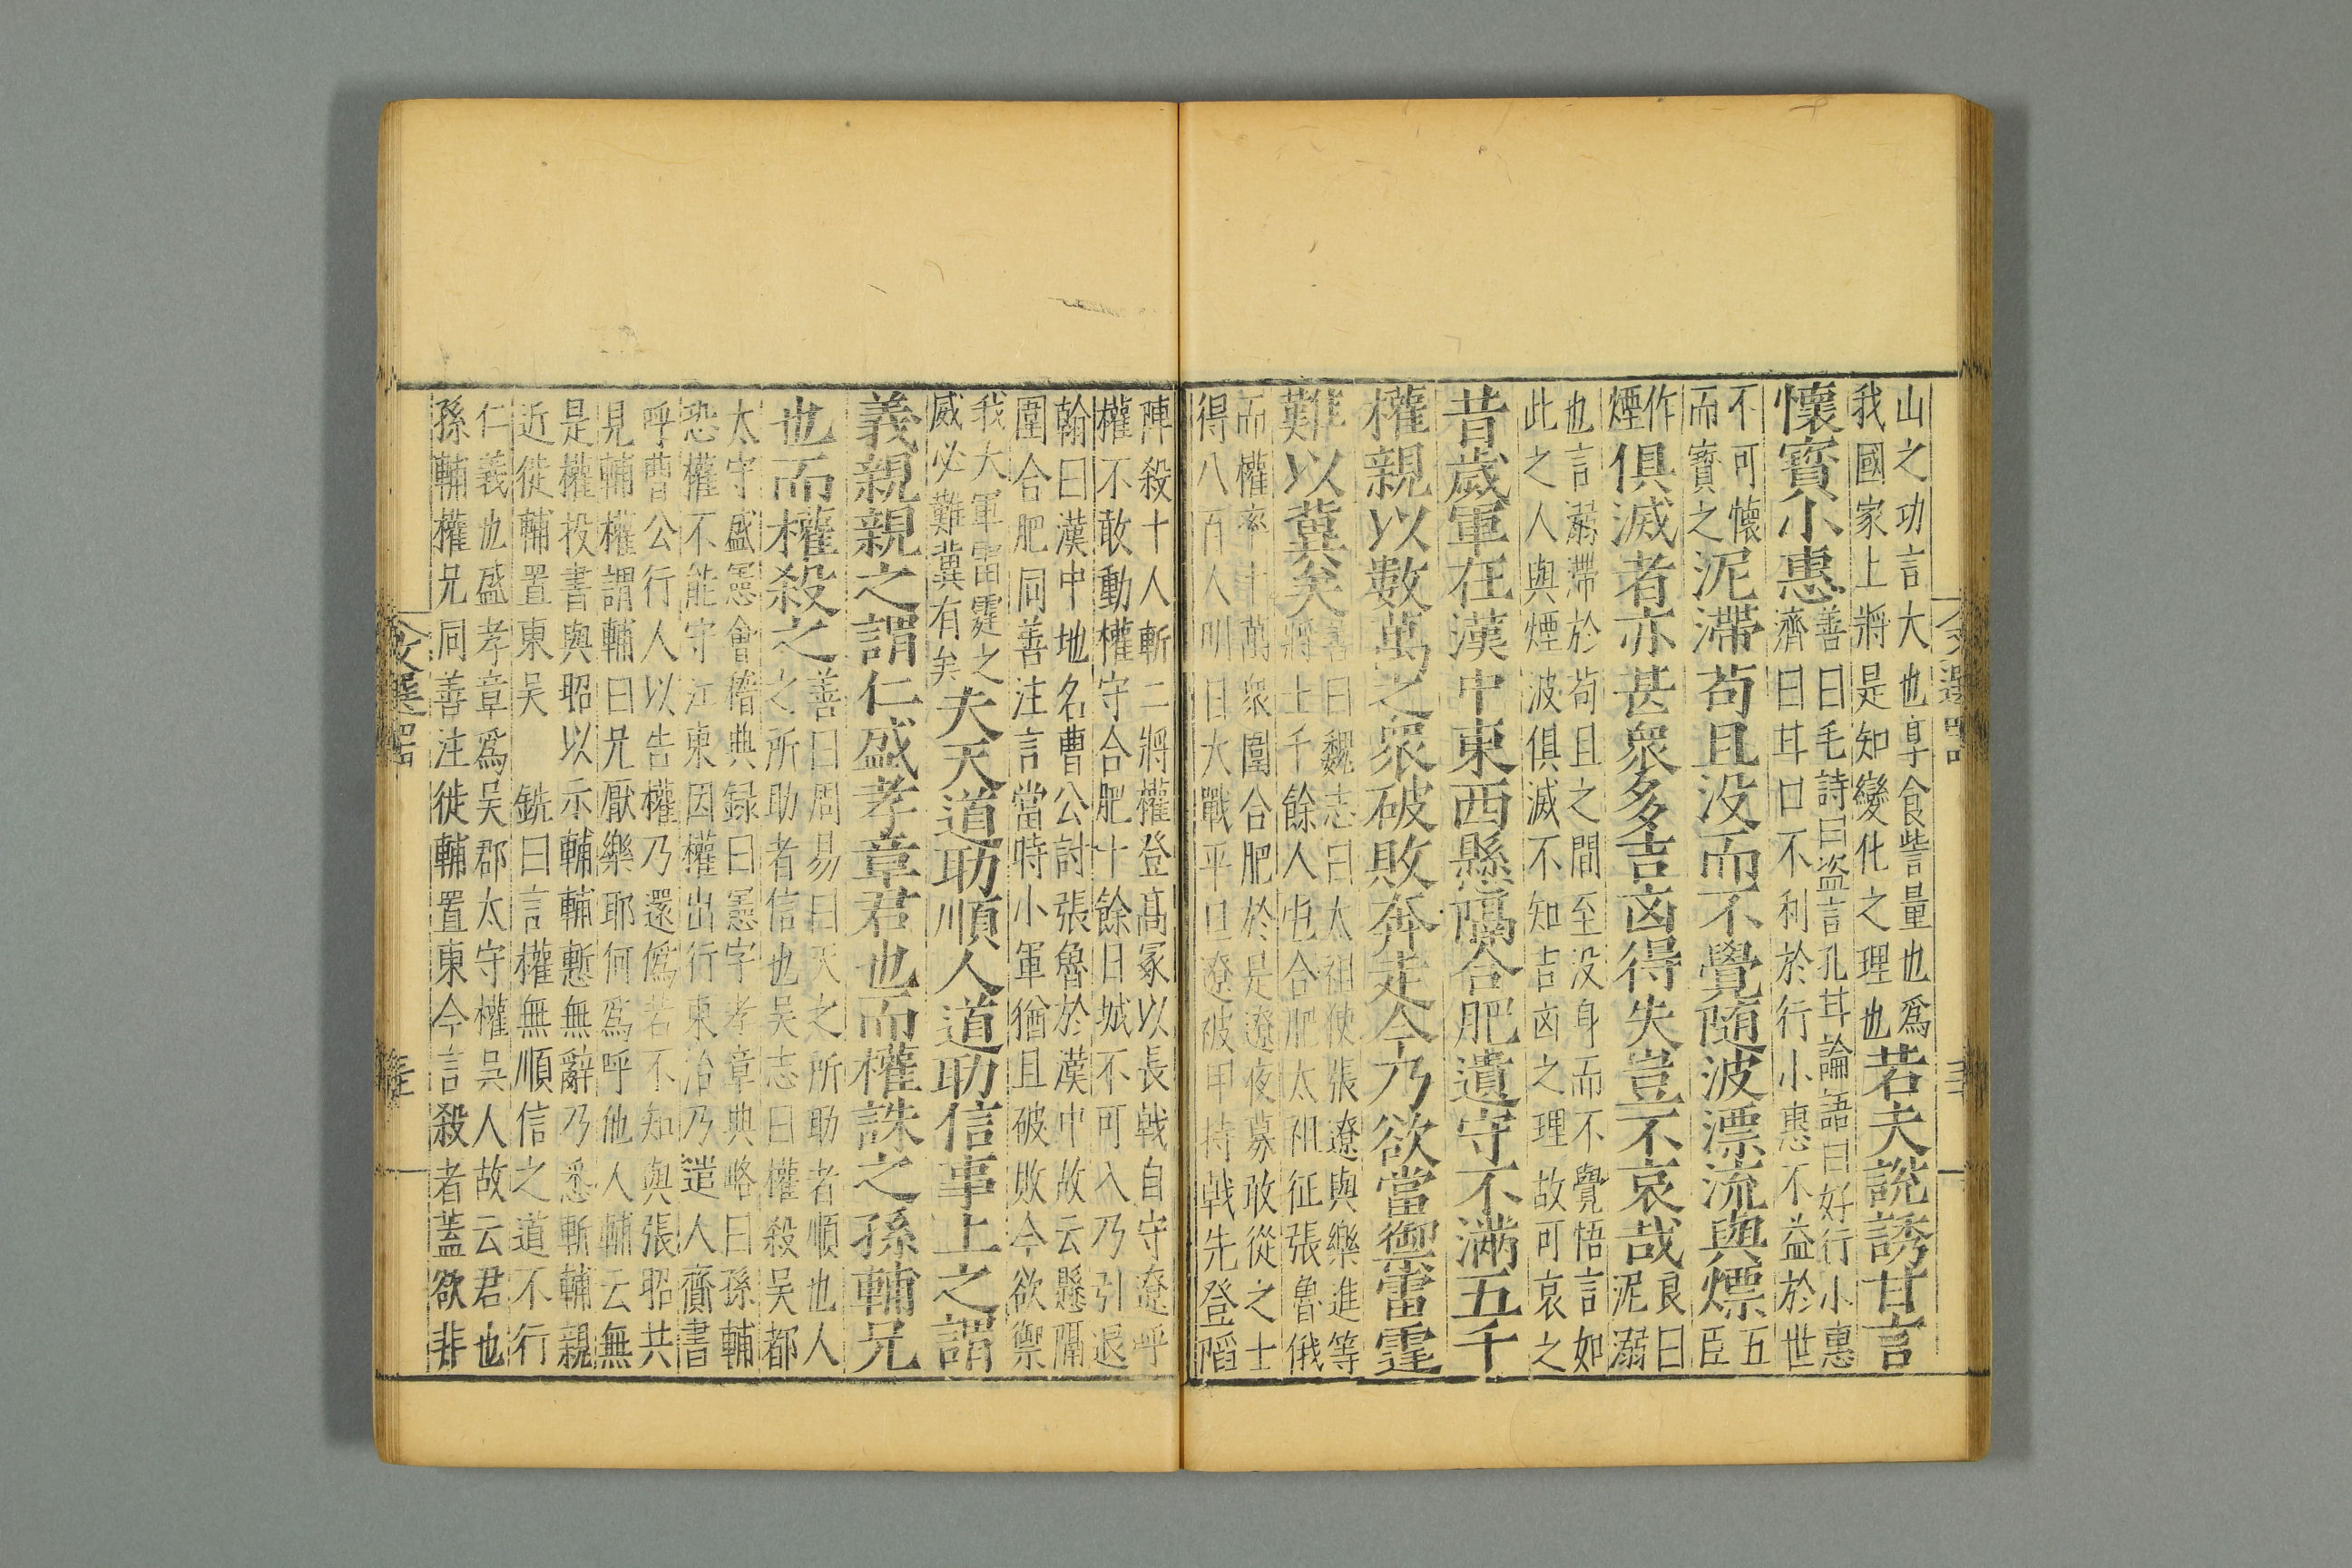 山之功言大也享食訾量也爲
我國家上將是知變化之理也
若夫說誘甘言
懷寶小惠
善曰毛詩曰盜言孔甘論語曰好行小惠
濟曰甘口不利於行小惠不益於世
不可懷
而寶之
泥滯苟且没而不覺隨波漂流與熛
五
臣
作
煙
俱滅者亦甚衆多吉凶得失豈不哀哉
良曰
泥溺
也言溺滯於苟且之間至没身而不覺悟言如
此之人與煙波俱滅不知吉凶之理故可哀之
昔歲軍在漢中東西懸隔合肥遺守不滿五千
權親以數萬之衆破敗奔走今乃欲當禦雷霆
難以冀矣
善曰魏志曰太祖使張遼與樂進等
將士千餘人屯合肥太祖征張魯俄
而權率十萬衆圍合肥於是遼夜募敢從之士
得八百人明日大戰平旦遼破甲持戟先登陷
陣殺十人斬二將權登高冢以長戟自守遼呼
權不敢動權守合肥十餘日城不可入乃引退
翰曰漢中地名曹公討張魯於漢中故云懸隔
圍合肥同善注言當時小軍猶且破敗今欲禦
我大軍雷霆之
威必難冀有矣
夫天道助順人道助信事上之謂
義親親之謂仁盛孝章君也而權誅之孫輔兄
也而權殺之
善曰周易曰天之所助者順也人
之所助者信也吴志曰權殺吴都
太守盛憲會稽典録曰憲字孝章典略曰孫輔
恐權不能守江東因權出行東冶乃遣人齎書
呼曹公行人以告權乃還僞若不知與張昭共
見輔權謂輔曰兄厭樂耶何爲呼他人輔云無
是權投書與昭以示輔輔慙無辭乃悉斬輔親
近徙輔置東吴 銑曰言權無順信之道不行
仁義也盛孝章爲吴郡太守權吴人故云君也
孫輔權兄同善注徙輔置東今言殺者蓋欲非